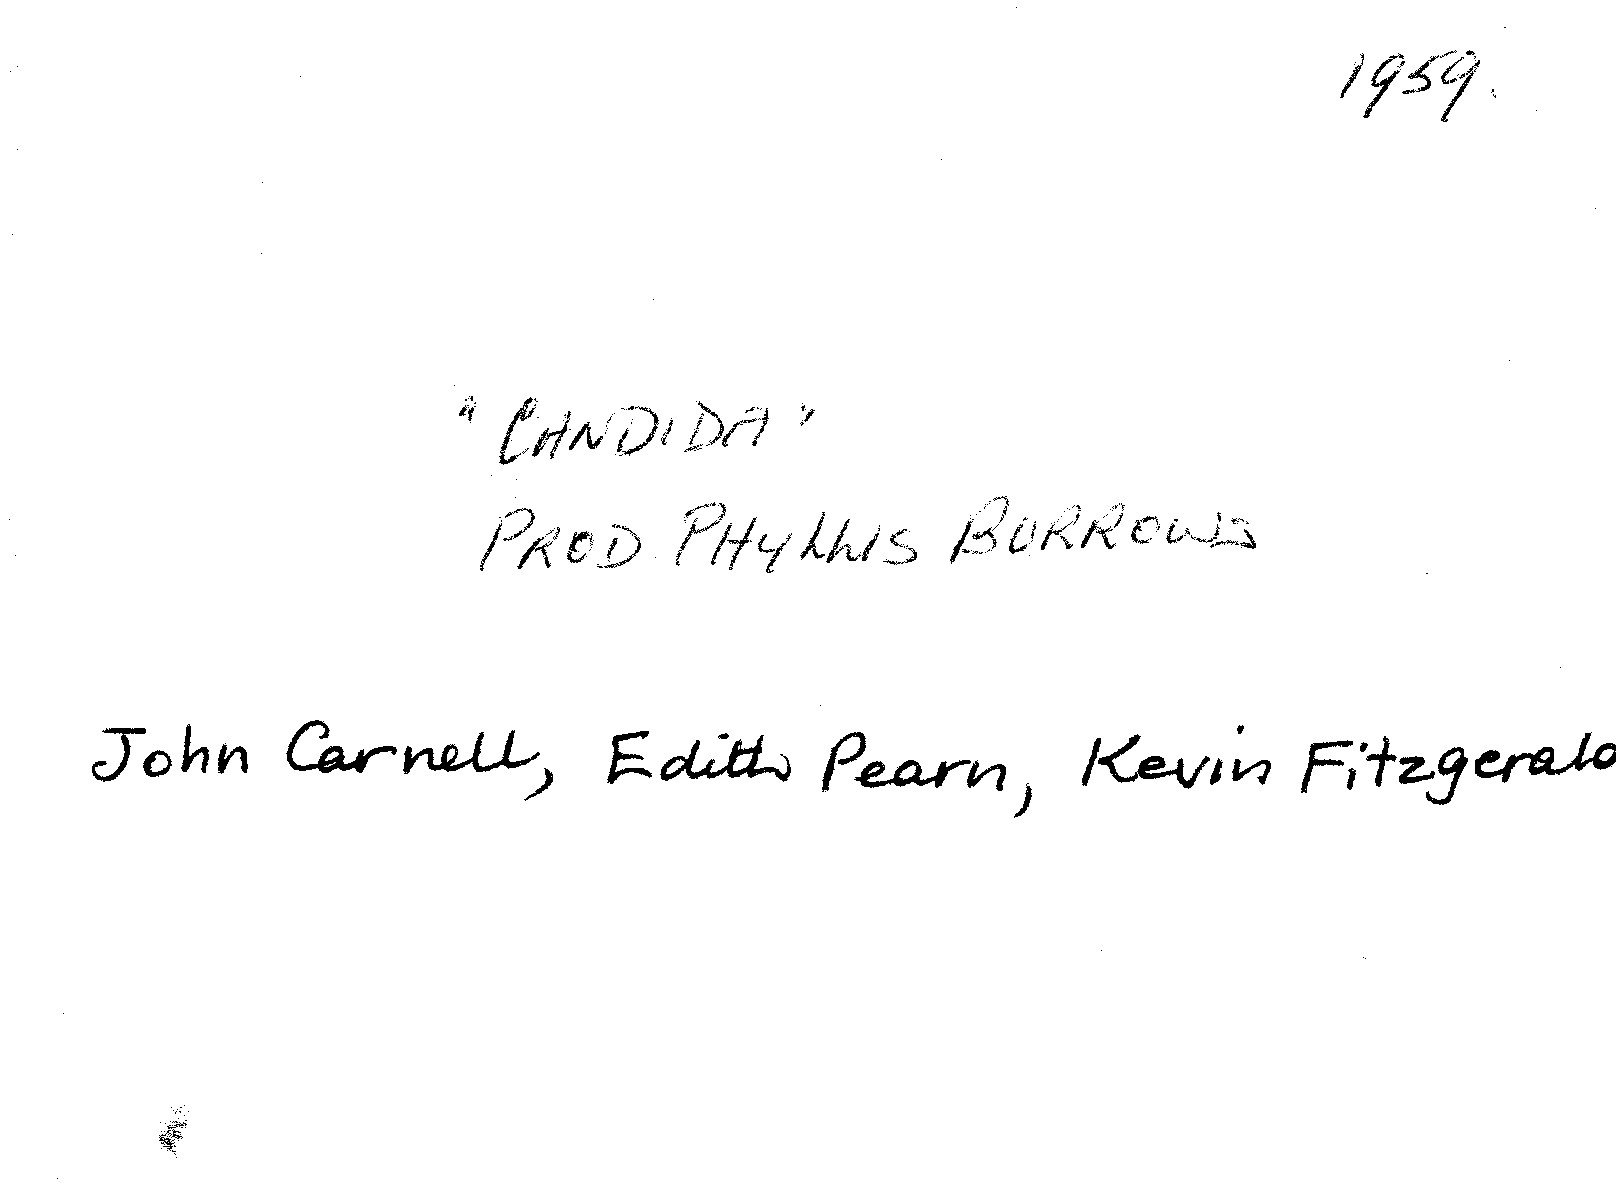 1959.
"CANDIDA"
PROD. PHYLLIS BURROWS
John Carnell, Edith Pearn, Kevin Fitzgerald